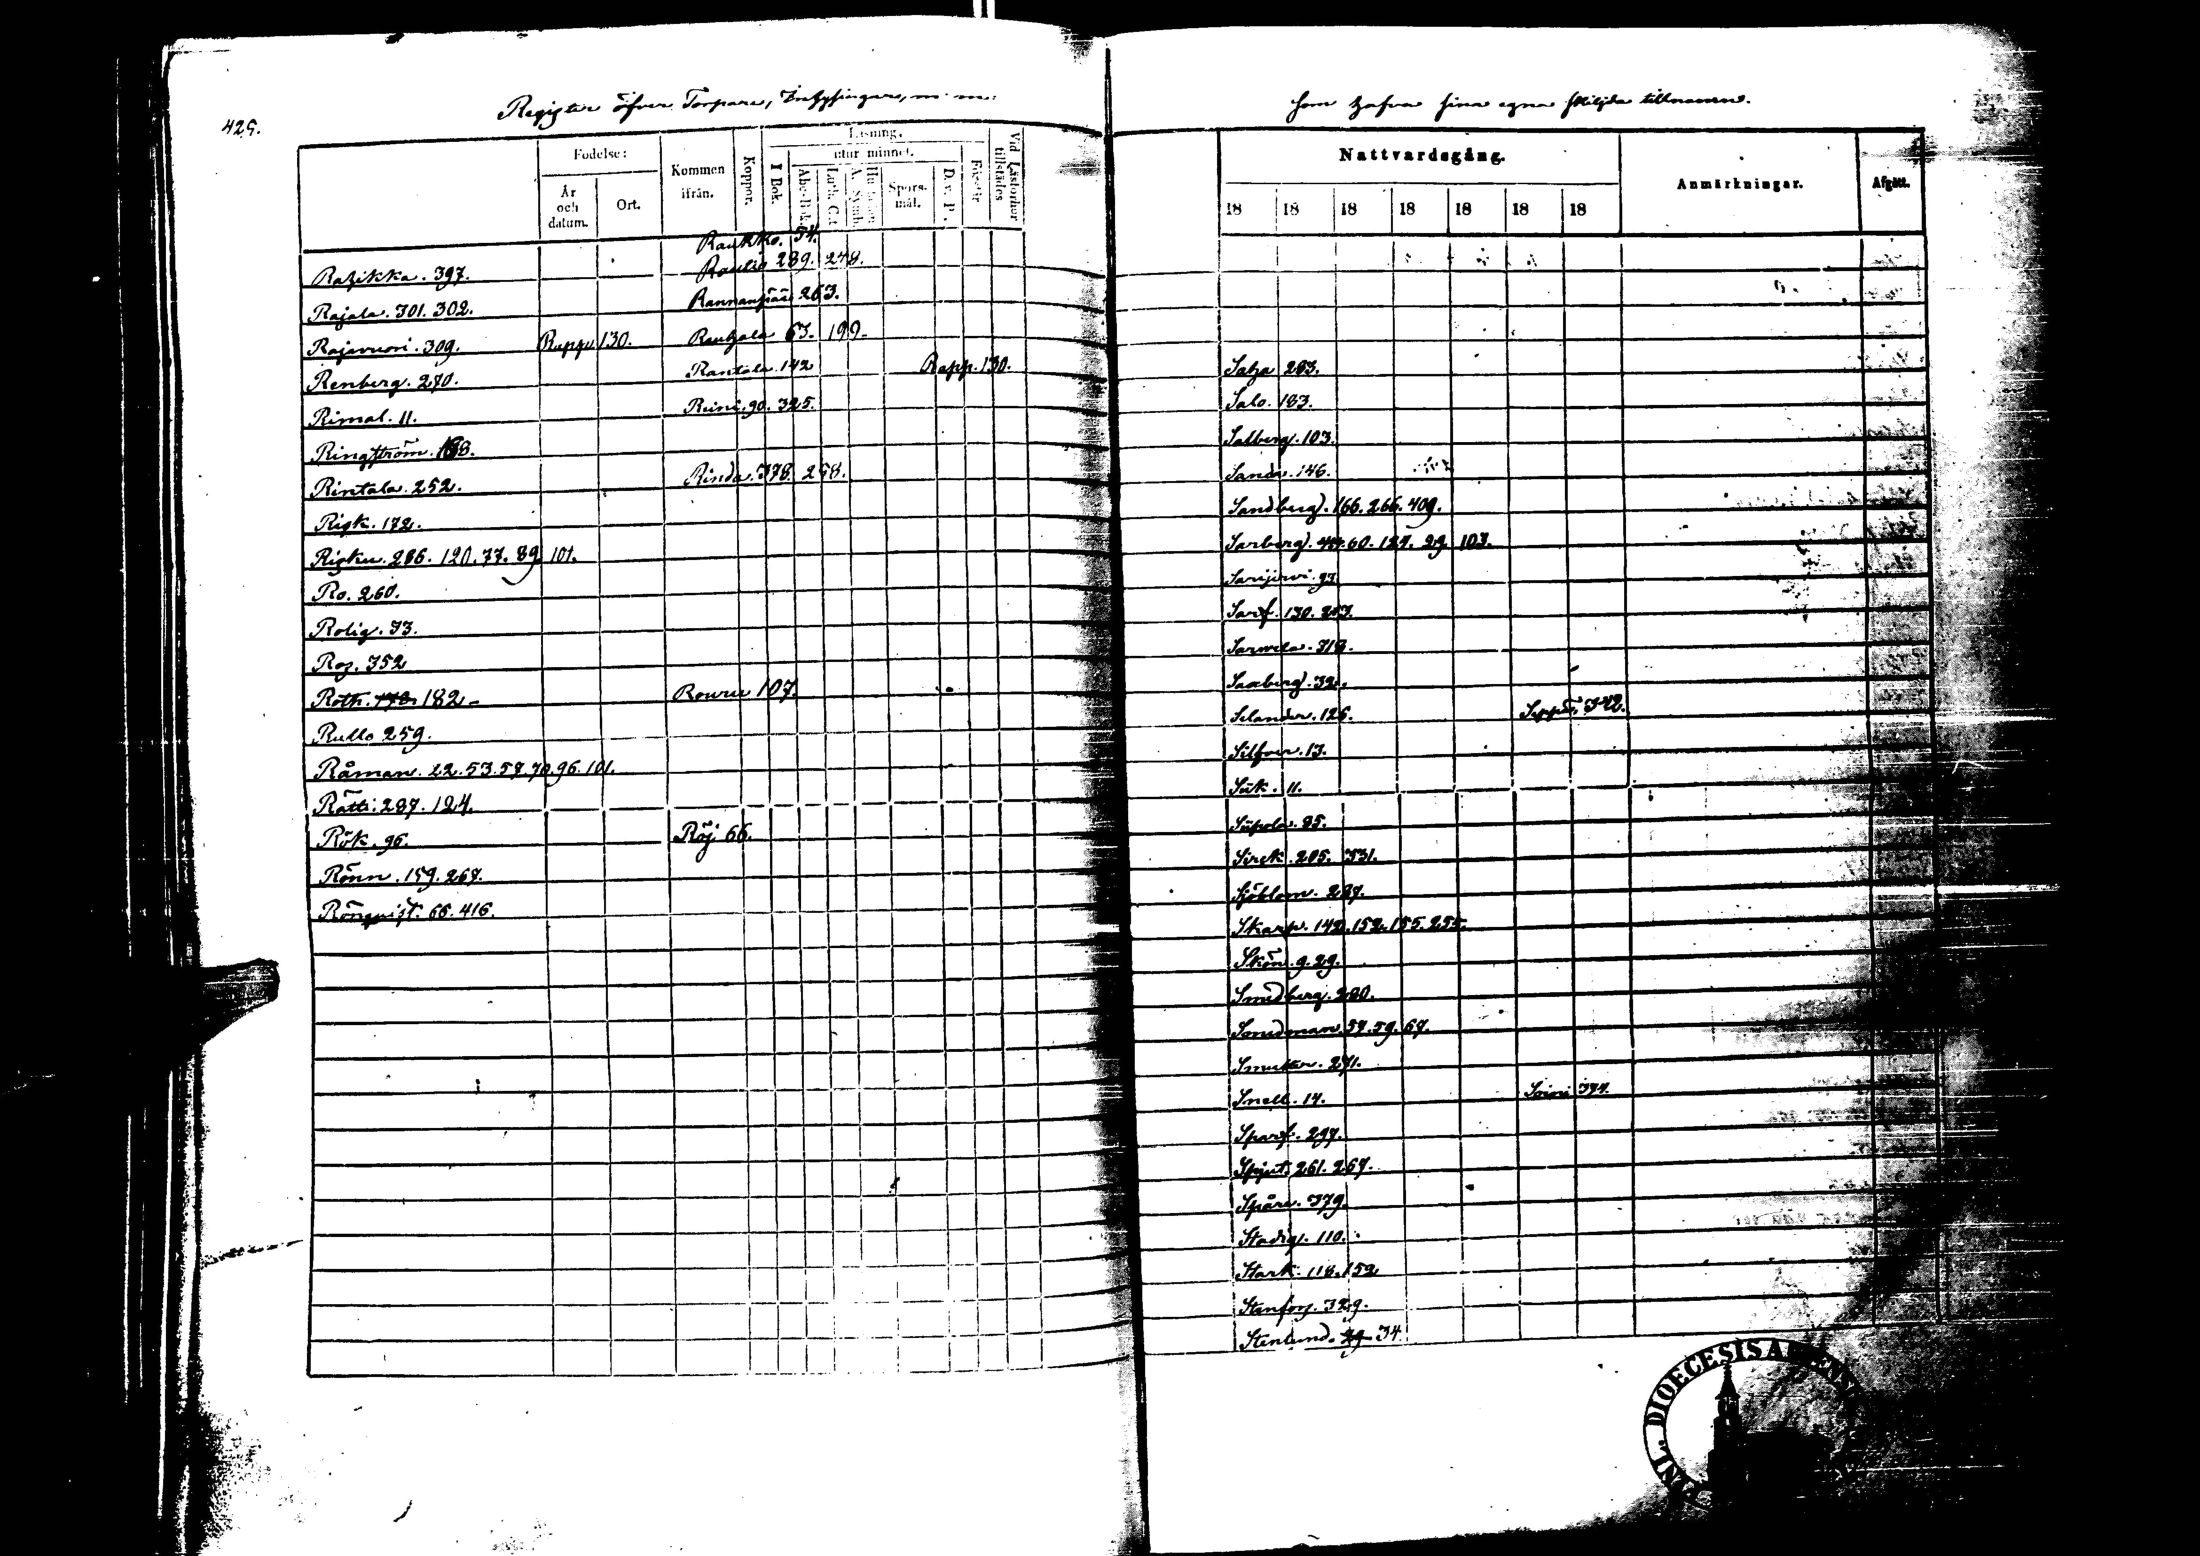 425.
Register öfver Torpare, Inhysingar, m.m.
Fodelse:
År och datum.
Ort.
Kommen ifrån.
Koppor.
Läsning.
I Bok.
utur minnet.
Abc-Bok.
Luth. C:t
A. Symb.
Spörs-mål.
D. v. P.
Förstår
Vid Läsförhör tillstädes
Raukko. 54.
Rautio 289. 248.
Rahikka. 397.
Rannanpää 263.
Rajala. 301. 302.
Rajavuori. 309. Rapp 130. Rauhala 63. 199.
Renberg. 270. Rantala. 142 Rapp. 130.
Rimal. 11. Reini. 90. 325.
Ringström. 168.
Rintala. 252. Rinda. 378. 258.
Risk. 172.
Risku. 286. 120. 77. 89. 101.
Ro. 260.
Rolig. 73.
Ros. 352
Roth. 182 Rouru 107.
Rullo 259.
Råman. 22. 53. 58. 70. 96. 101.
Rätti. 287. 124.
Rök. 96. Röj 66.
Rönn. 159. 267.
Rönqvist. 66. 416.
som hafva sina egna skiljda tillnamn.
Nattvardsgång.
Anmärkningar.
Afgått.
18 18 18 18 18 18 18
Saha 283.
Salo. 183.
Salberg. 103.
Sanda. 146.
Sandberg. 166. 266. 409.
Sarberg. 60. 129. 29 103.
Sarijervi. 93
Sarf. 130. 283.
Sarvela. 318.
Saxberg. 32.
Selander. 126. Seppä. 342.
Silfver. 13.
Siik. 11.
Siipola. 85.
Sirek. 205. 331.
Sjöblom. 287.
Skarp. 142. 152. 155. 255.
Skön. 9. 29.
Smedberg. 280.
Smedman. 57. 59. 67.
Smulter. 271.
Snell. 14. Soini 374.
Sparf. 297.
Spjut. 261. 267.
Spåre. 379.
Stadig. 110.
Stark. 118. 152
Stenfors. 329.
Stenlund. 29 34.
DIOECESIS